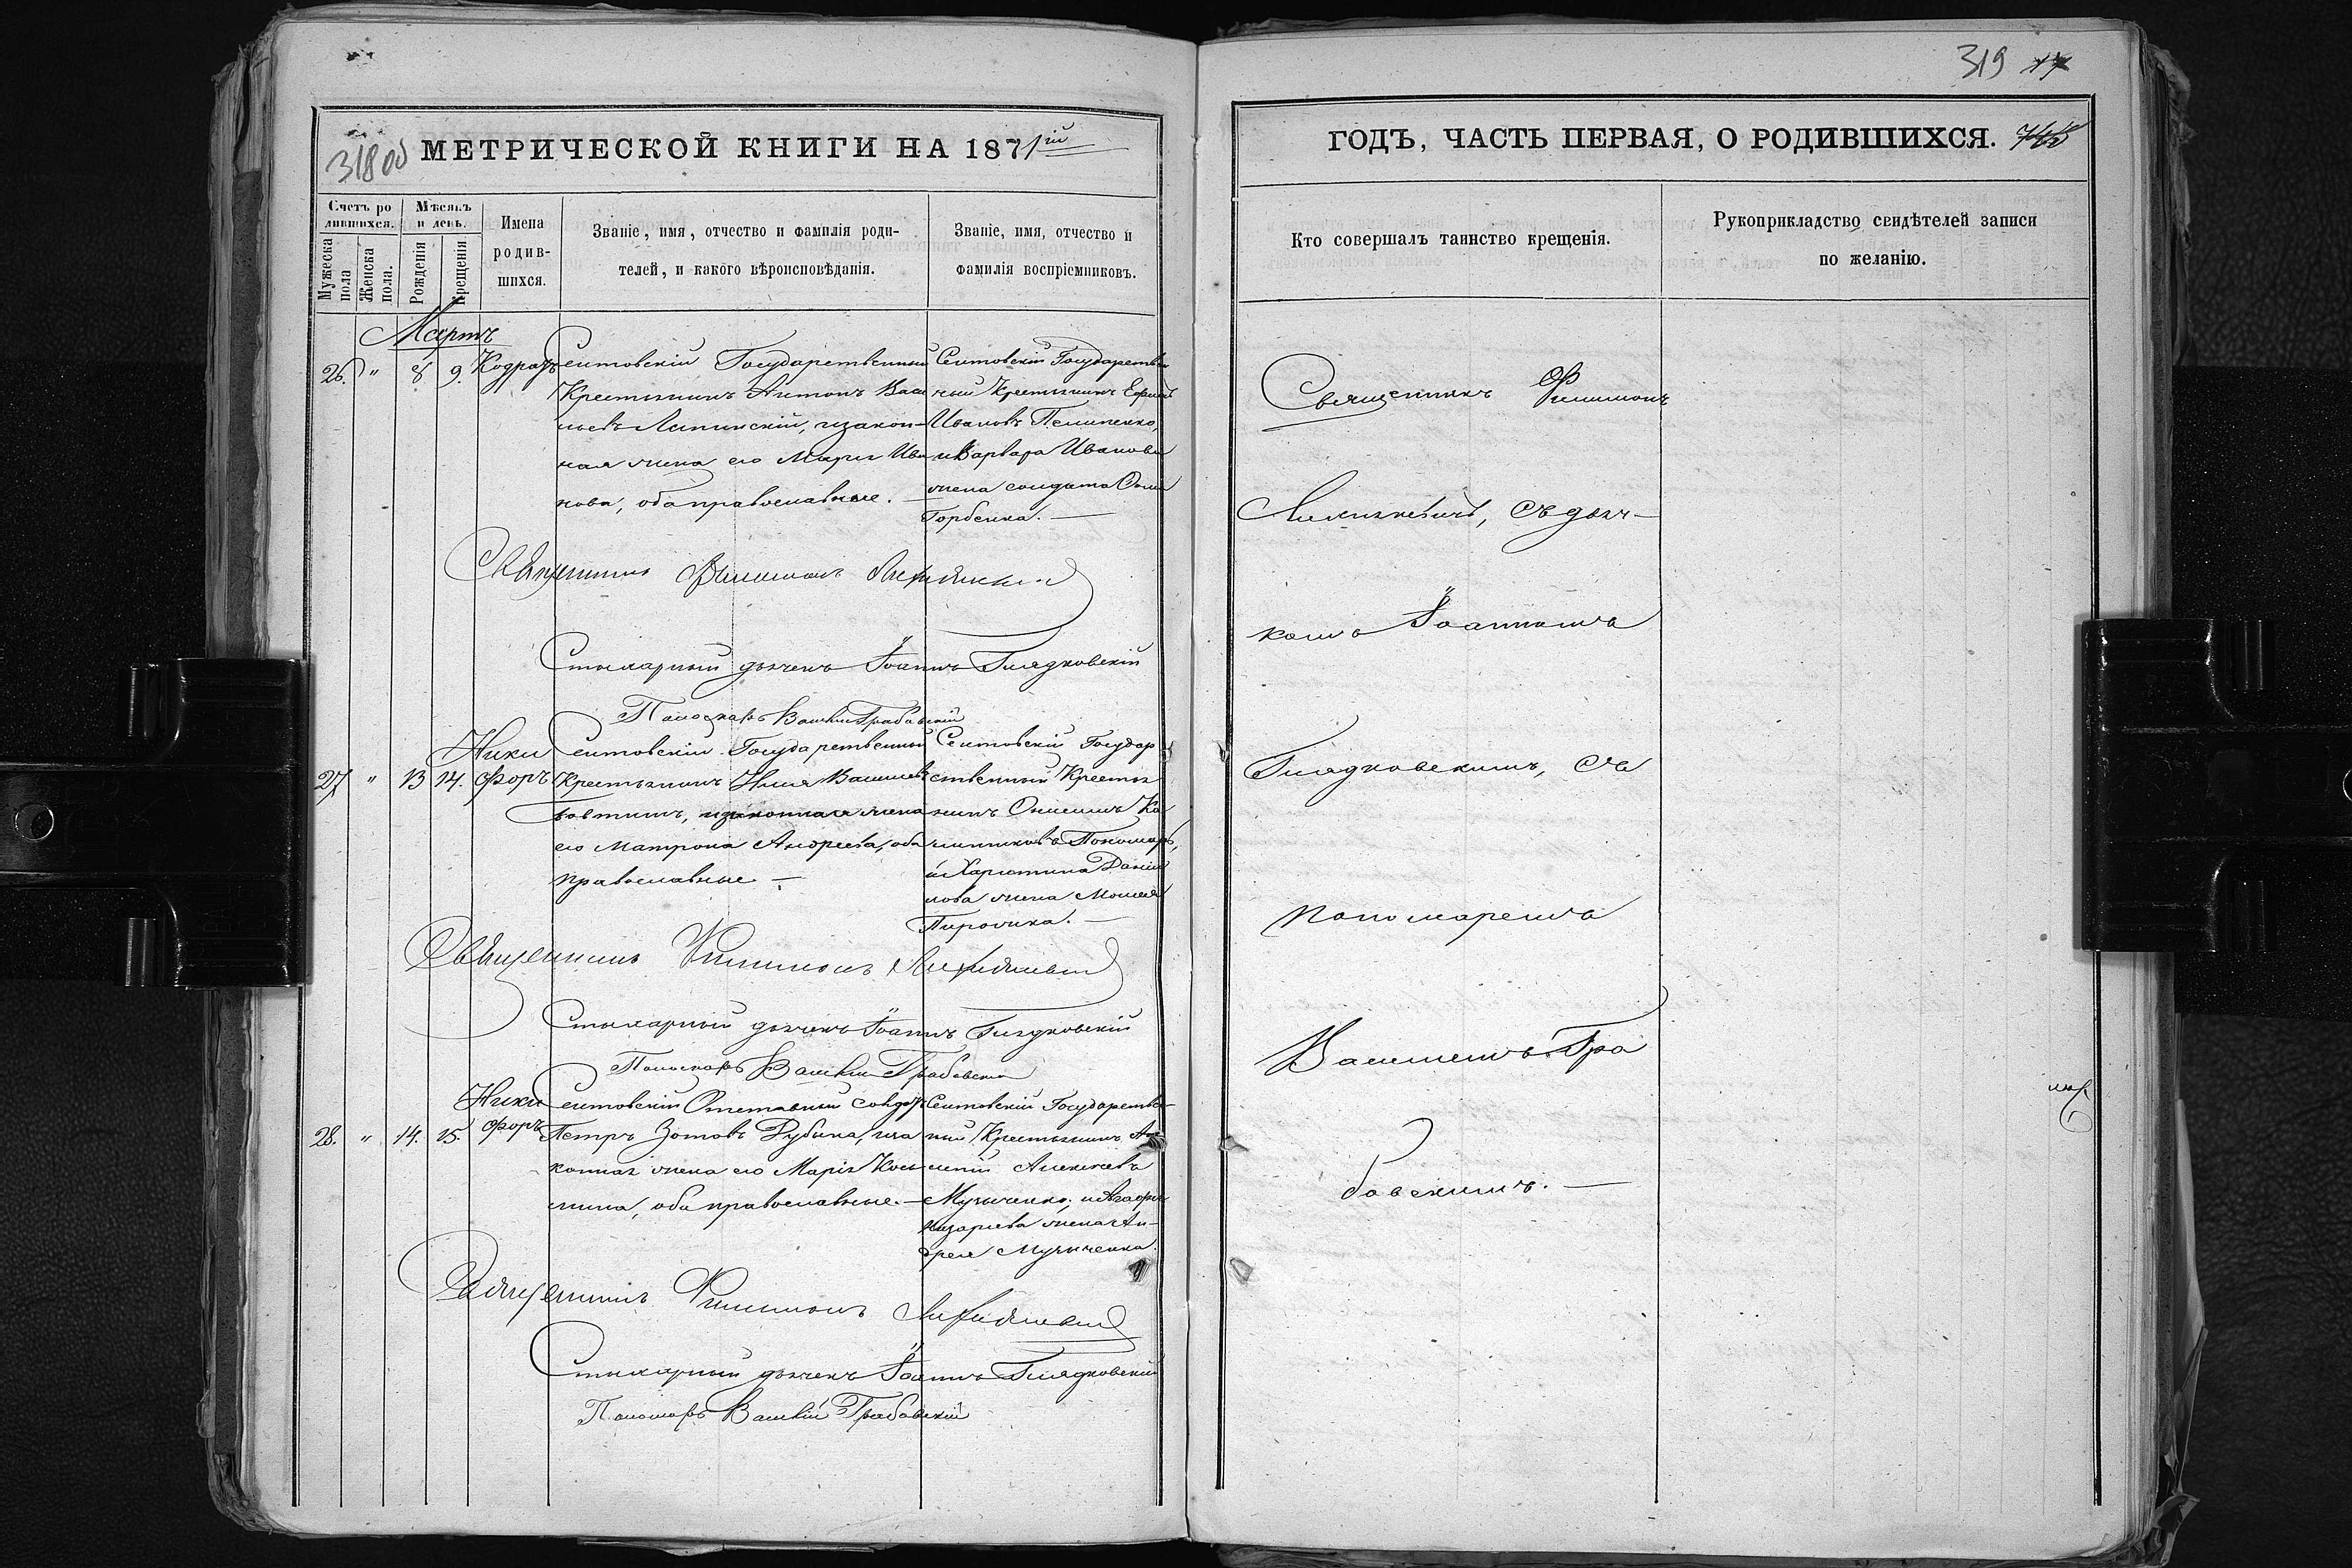 318 об
МЕТРИЧЕСКОЙ КНИГИ НА 1871ій
Счетъ родившихся.
Мужеска пола
Женска пола.
Мѣсяцъ и день.
Рожденія
Крещенія
Имена родившихся.
Званіе, имя, отчество и фамилія родителей, и какого вѣроисповѣданія.
Званіе, имя, отчество и фамилія воспріемниковъ.
Мартъ
26. " 8 9. Кодратъ
Сентовскій Государственный
Крестьянинъ Антонъ Васи
льевъ Липинскій, и закон-
ная жена его Марія Ива
нова, оба православные. —
Сентовскій Государствен
ный Крестьянинъ Ефимъ
Ивановъ Пелипенко,
и Варвара Иванова
жена солдата
Горбенка. —
Священникъ Филимонъ
Стихарный дьячекъ Іоаннъ Гладковскій
Пономарь Василій Грабовскій
27. " 13 14. Никифоръ
Сентовскій Государственный
Крестьянинъ Илія Васильевъ
Товтинъ, и законная жена
его Матрона Андреева, оба
православные —
Сентовскій Государ
ственный Крестья
нинъ Онисимъ Ка
линниковъ Пономарь,
и Харитина Даніи
лова жена Моисея
Пирожка. —
Священникъ Филимонъ
Стихарный дьячекъ Іоаннъ Гладковскій
Пономарь Василій Грабовскій
28. " 14. 15. Никифоръ
Сентовскій Отставный солдатъ
Петръ Зотовъ Рубина, и за
конная жена его Марія Кось
мина, оба православные. —
Сентовскій Государствен-
ный Крестьянинъ
Алексѣевъ
Музыченко, и Агафія
Назаріева жена Ан-
дрея Музыченка.
Священникъ Филимонъ
Стихарный дьячекъ Іоаннъ Гладковскій
Пономарь Василій Грабовскій
319
ГОДЪ, ЧАСТЬ ПЕРВАЯ, О РОДИВШИХСЯ.
Кто совершалъ таинство крещенія.
Рукоприкладство свидѣтелей записи по желанію.
Священникъ Филимонъ
съ дьяч-
комъ Іоанномъ
Гладковскимъ, съ
пономаремъ
Василіемъ Гра
бовскимъ. —